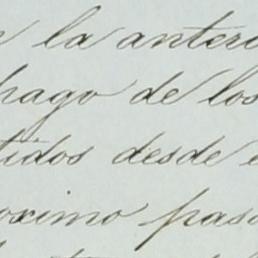 la anteri
pago de los
tidos desde e
oximo pasa